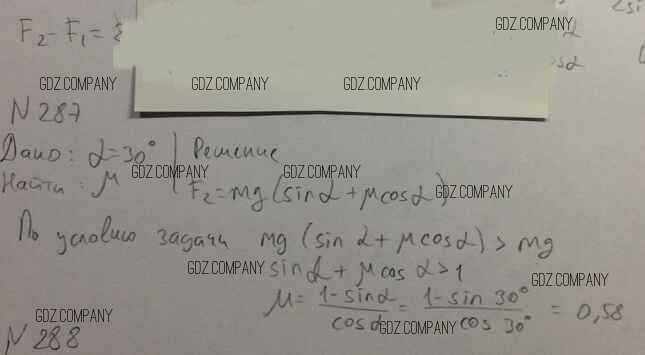 GDZ.COMPANY
F₂ - F₁ =
α
cos α
GDZ.COMPANY GDZ.COMPANY GDZ.COMPANY
N 287
Дано: α = 30° | Решение
GDZ.COMPANY GDZ.COMPANY
Найти: μ | F₂ = mg (sin α + μ cos α)
GDZ.COMPANY
По условию задачи mg (sin α + μ cos α) > mg
GDZ.COMPANY sin α + μ cos α > 1
GDZ.COMPANY
μ = (1 - sin α)/(cos α) = (1 - sin 30°)/(cos 30°) = 0,58
GDZ.COMPANY GDZ.COMPANY
N 288